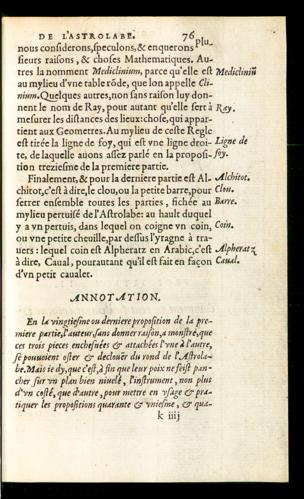 DE L'ASTROLABE. 76
nous considerons, speculons, & enquerons plu-
sieurs raisons, & choses Mathematiques. Au-
tres la nomment Mediclinium, parce qu'elle est Medicliniũ
au mylieu d'vne table rõde, que lon appelle Cli-
nium. Quelques autres, non sans raison luy don-
nent le nom de Ray, pour autant qu'elle sert à Ray.
mesurer les distances des lieux: chose, qui appar-
tient aux Geometres. Au mylieu de ceste Regle
est tirée la ligne de foy, qui est vne ligne droi- Ligne de
te, de laquelle auons assez parlé en la proposi- foy.
tion treziesme de la premiere partie.
Finalement, & pour la derniere partie est Al- Alchitot.
chitot, c'est à dire, le clou, ou la petite barre, pour Clou.
serrer ensemble toutes les parties, fichée au Barre.
mylieu pertuisé de l'Astrolabe: au hault duquel
y a vn pertuis, dans lequel on coigne vn coin, Coin.
ou vne petite cheuille, par dessus l'yragne à tra-
uers: lequel coin est Alpheratz en Arabic, c'est Alpheratz
à dire, Caual, pourautant qu'il est fait en façon Caual.
d'vn petit caualet.
ANNOTATION.
En la vingtiesme ou derniere proposition de la pre-
miere partie, l'auteur, sans donner raison, a monstré, que
ces trois pieces enchesnées & attachées l'vne à l'autre,
se pouuoient oster & declouër du rond de l'Astrola-
be. Mais ie dy, que c'est, à fin que leur poix ne feist pan-
cher sur vn plan bien niuelé, l'instrument, non plus
d'vn costé, que d'autre, pour mettre en vsage & pra-
tiquer les propositions quarante & vniesme, & qua-
k iiij